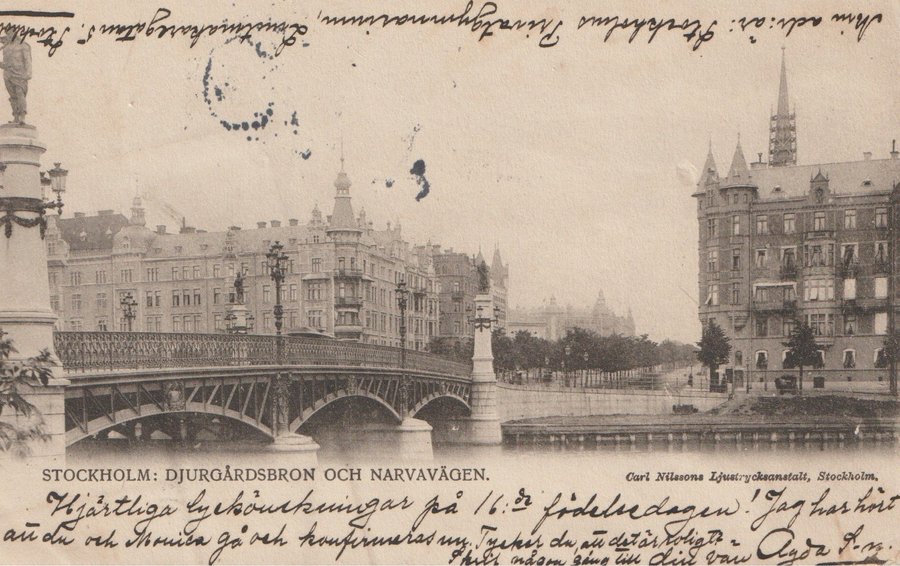 Min adr: är: Stockholms Privatgymnasium,
Lästmakaregatan 5. Stockholm
STOCKHOLM: DJURGÅRDSBRON OCH NARVAVÄGEN.
Carl Nilssons Ljustrycksanstalt, Stockholm.
Hjärtliga lyckönskningar på 16:de födelsedagen! Jag har hört
att du och Monica gå och konfirmeras nu. Tycker du, att det är roligt?
Skrif någon gång till din vän Agda S-n.